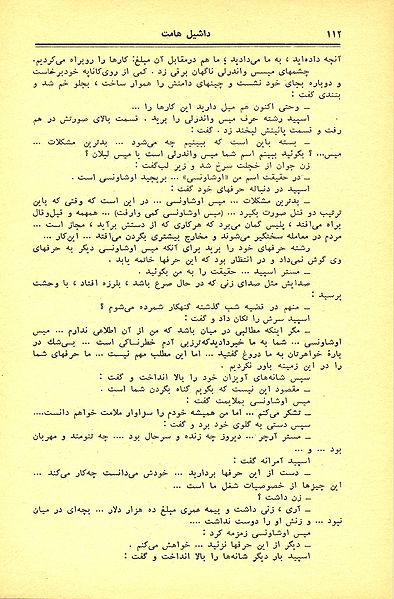 ۱۱۲
داشیل هامت
آنچه داده‌اید ، به ما می‌دادید ؛ ما هم درمقابل آن مبلغ: کارها را روبراه می‌کردیم.
چشمهای میسس واندرلی ناگهان برقی زد . کمی از روی‌کاناپه خودبرخاست
و دوباره بجای خود نشست و چینهای دامنش را هموار ساخت ، بجلو خم شد و
بتندی گفت :
ـ وحتی اکنون هم میل دارید این کارها را ...
اسپید رشته حرف میس واندرلی را برید . قسمت بالای صورتش در هم
رفت و قسمت پائینش لبخند زد . گفت :
ـ بسته باین است که ببینیم چه می‌شود ... بدترین مشکلات ...
میس... ؟ بگوئید ببینم اسم شما میس واندرلی است یا میس لبلان ؟
زن جوان از خجلت سرخ شد و زیر لب‌گفت :
ـ در حقیقت اسم من «اوشاونسی»... بریجید اوشاونسی است .
اسپید در دنباله حرفهای خود گفت :
ـ بدترین مشکلات ... میس اوشاونسی ... در این است که وقتی که باین
ترتیب دو قتل صورت بگیرد ... (میس اوشاونسی کمی وارفت) ... همهمه و قیل‌وقال
براه می‌افتد ، پلیس گمان می‌برد که هرکاری که از دستش برآید ، مجاز است ...
مردم در معامله سختگیر می‌شوند و مخارج بیشتری بگردن می‌افتد ... این‌کار ...
رشته حرفهای خود را برید برای آنکه میس اوشاونسی دیگر به حرفهای
وی گوش نمی‌داد و در انتظار بود که این حرفها خاتمه یابد .
ـ مستر اسپید ... حقیقت را به من بگوئید .
صدایش مثل صدای زنی که در حال صرع باشد ، بلرزه افتاد ، با وحشت
پرسید :
ـ متهم در قضیه شب گذشته گنهکار شمرده می‌شوم ؟
اسپید سرش را تکان داد و گفت :
ـ مگر اینکه مطالبی در میان باشد که من از آن اطلاعی ندارم ... میس
اوشاونسی ... شما به ما خبردادیدکه‌ترزبی آدم خطرناکی است ... بی‌شك در
پارهٔ خواهرتان به ما دروغ گفتید ... اما این مطلب مهم نیست ... ما حرفهای شما
را در این زمینه باور نکردیم .
سپس شانه‌های آویزان خود را بالا انداخت و گفت :
ـ مقصود این نیست که بگویم گناه بگردن شما است .
میس اوشاونسی بملایمت گفت :
ـ تشکر می‌کنم ... اما من همیشه خودم را سزاوار ملامت خواهم دانست....
سپس دستی به گلوی خود برد و گفت :
ـ مستر آرچر ... دیروز چه زنده و سرحال بود .... چه تنومند و مهربان
بود ... و ...
اسپید آمرانه گفت :
ـ دست از این حرفها بردارید ... خودش می‌دانست چه‌کار می‌کند ...
این چیزها از خصوصیات شغل ما است ...
ـ زن داشت ؟
ـ آری ، زنی داشت و بیمه عمری مبلغ ده هزار دلار ... بچه‌ای در میان
نبود ... و زنش او را دوست نداشت ....
میس اوشاونسی زمزمه کرد :
ـ دیگر از این حرفها نزنید ... خواهش می‌کنم .
اسپید بار دیگر شانه‌ها را بالا انداخت و گفت :